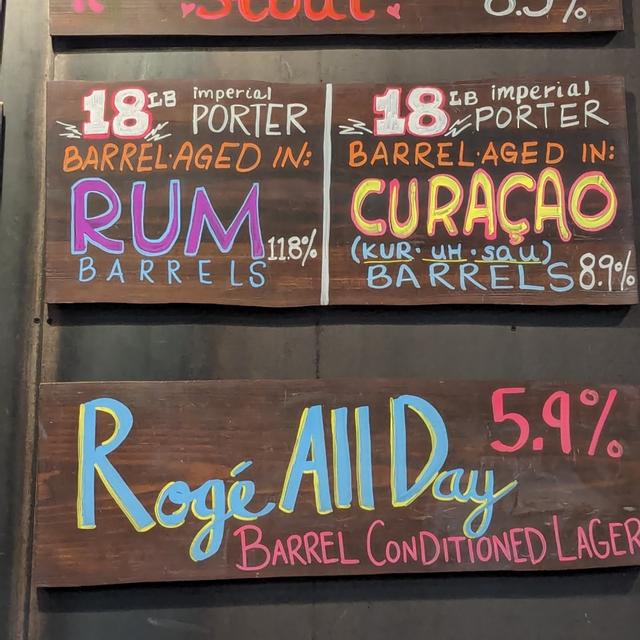 Stout 8.5%
18 LB imperial PORTER
BARREL·AGED IN:
RUM
BARRELS 11.8%
18 LB imperial PORTER
BARREL·AGED IN:
CURAÇAO
(KUR·UH·sau)
BARRELS 8.9%
Rogé All Day 5.9%
BARREL CONDITIONED LAGER